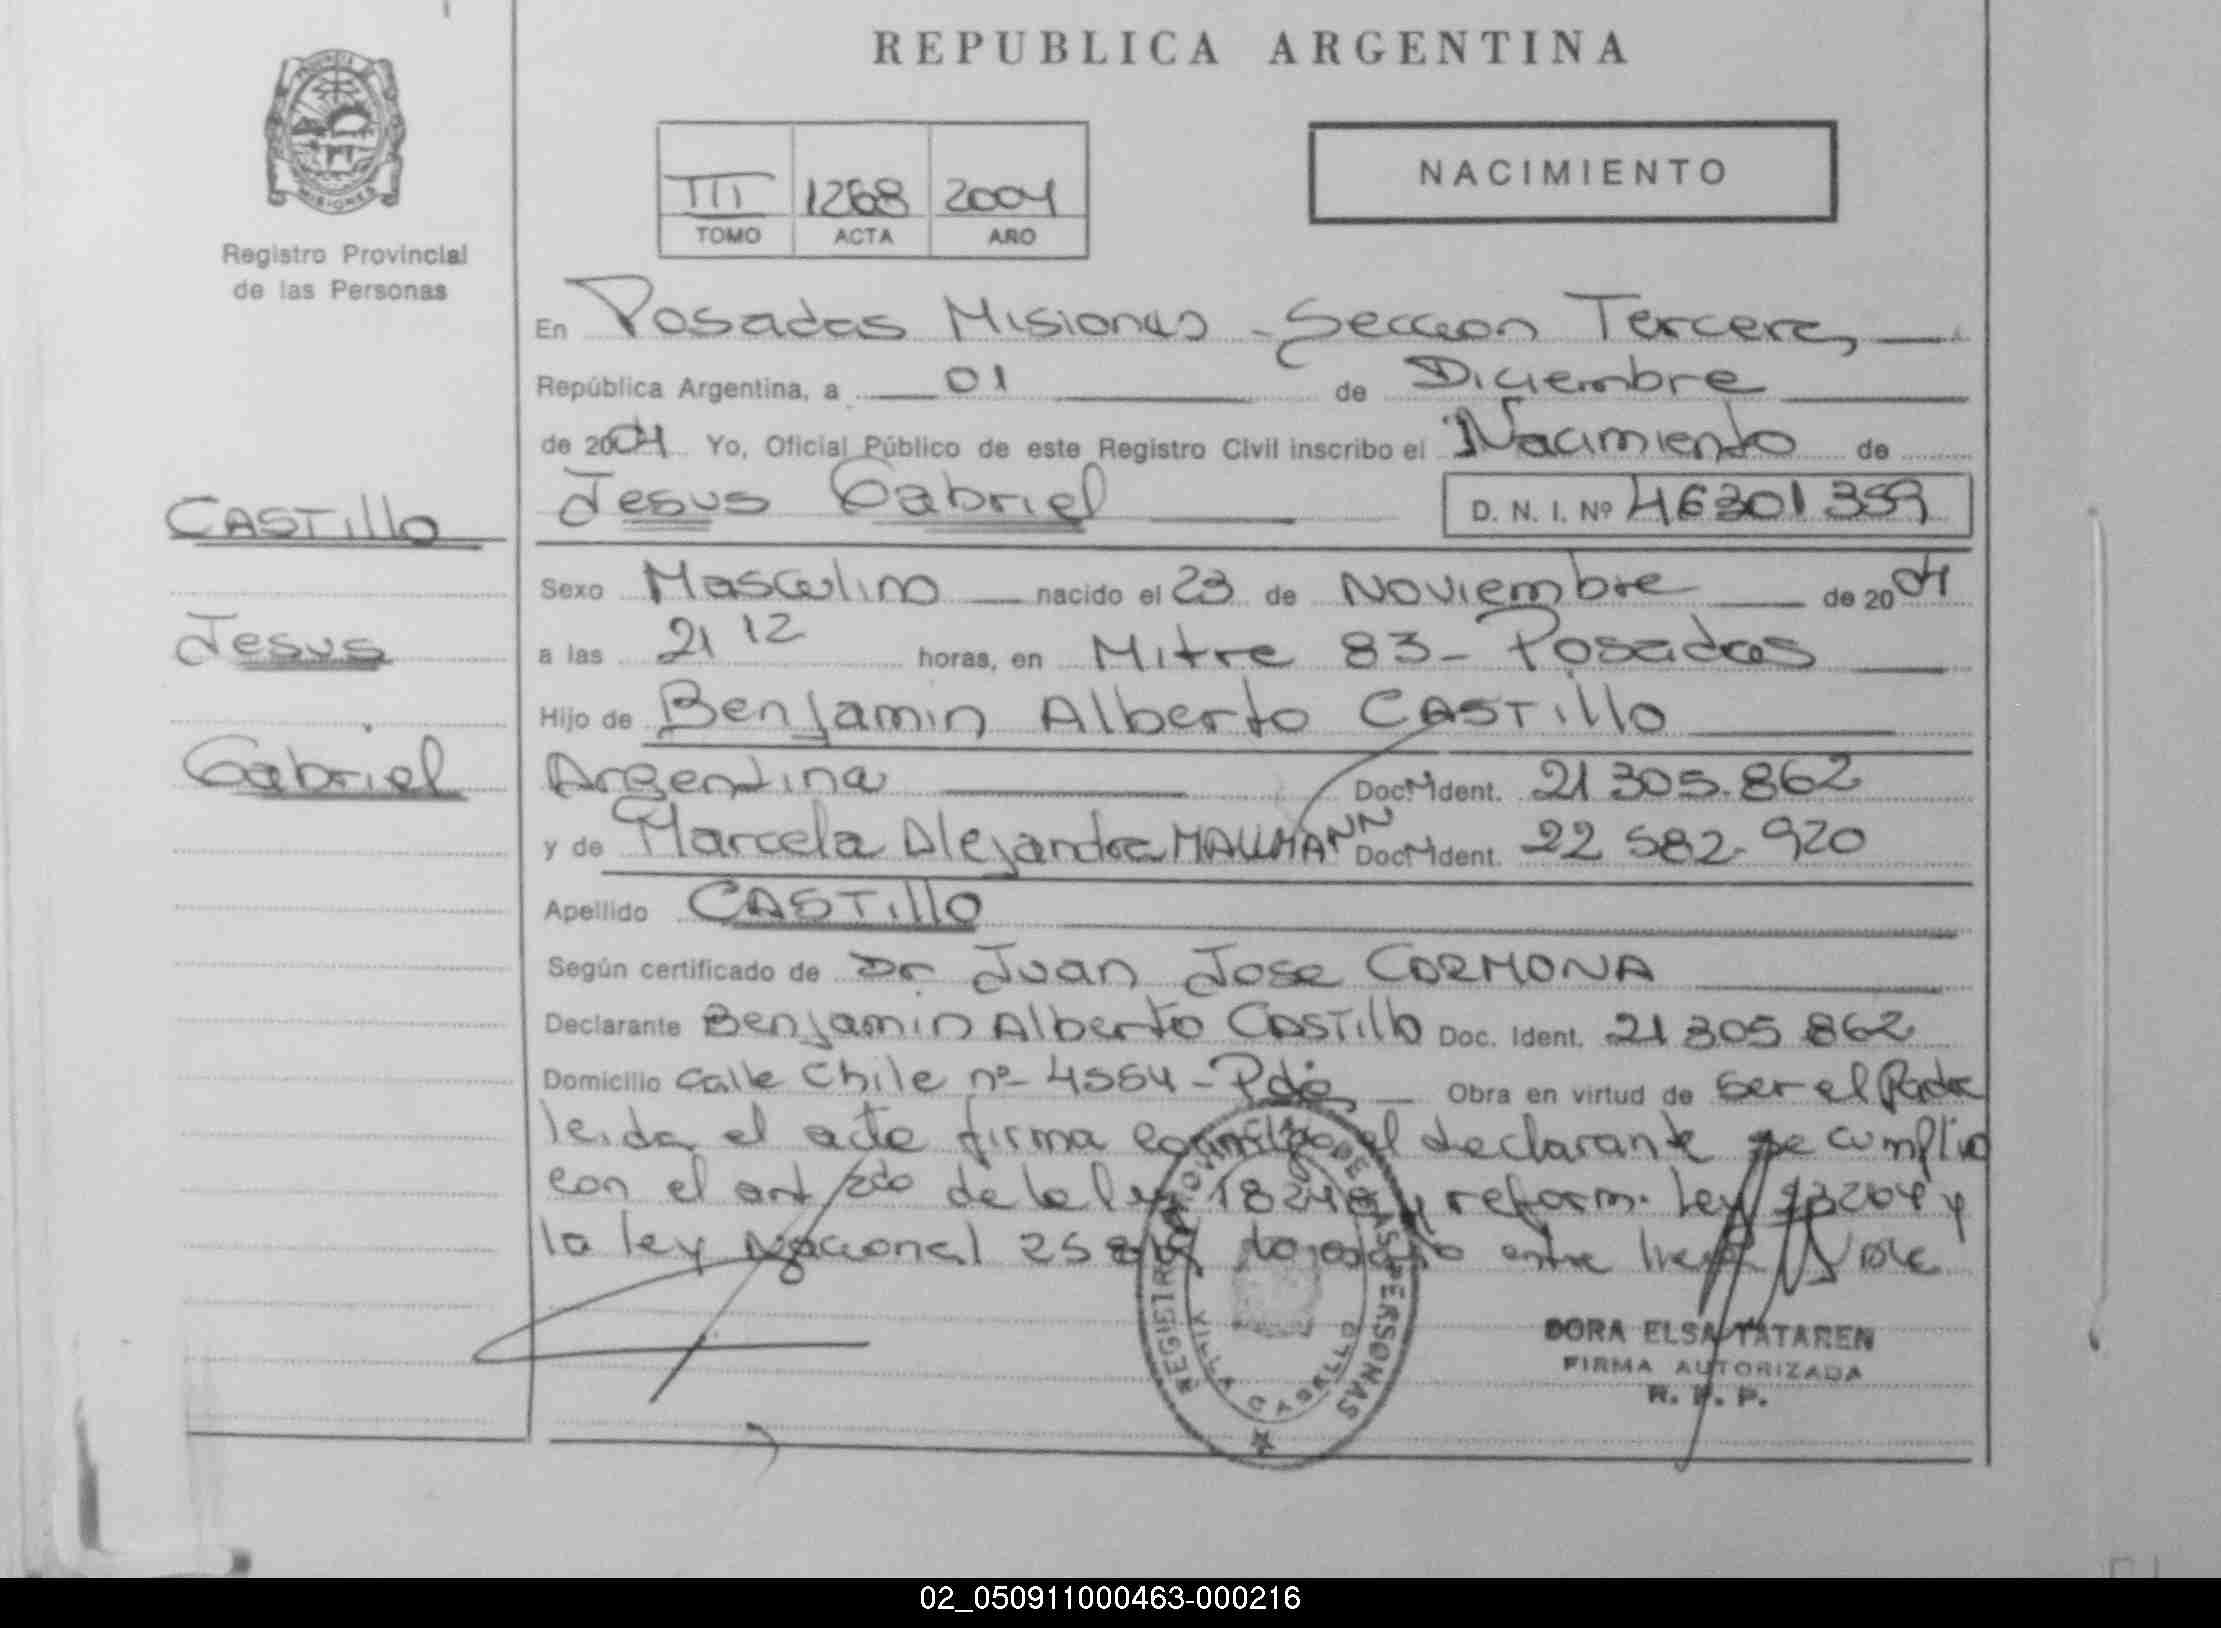 REPUBLICA ARGENTINA
PROVINCIA DE
MISIONES
Registro Provincial
de las Personas
III 1268 2004
TOMO ACTA AÑO
NACIMIENTO
En Posadas Misiones - Seccion Tercera,
República Argentina, a 01 de Diciembre
de 2004 Yo, Oficial Público de este Registro Civil inscribo el Nacimiento de
CASTillo
Jesus Gabriel D. N. I. Nº 46301359
Sexo Masculino nacido el 23 de Noviembre de 2004
Jesus
a las 21 12 horas, en Mitre 83 - Posadas
Hijo de Benjamin Alberto CASTillo
Gabriel
Argentina Doc. Ident. 21 305.862
y de Marcela Alejandra Doc. Ident. 22 582.920
Apellido CASTillo
Según certificado de Dr Juan Jose CORMONA
Declarante Benjamin Alberto CASTillo Doc. Ident. 21 305 862
Domicilio Calle Chile nº 4554 - Pdas Obra en virtud de ser el Padre
leida el acta firma conmigo el declarante se cumplio
con el art 2do de la ley 18248 y reform. Ley 23264 y
la ley Nacional entre lineas vale
REGISTRO PROVINCIAL DE LAS PERSONAS
VILLA CABELLO
DORA ELSA TATAREN
FIRMA AUTORIZADA
R. P. P.
02_050911000463-000216